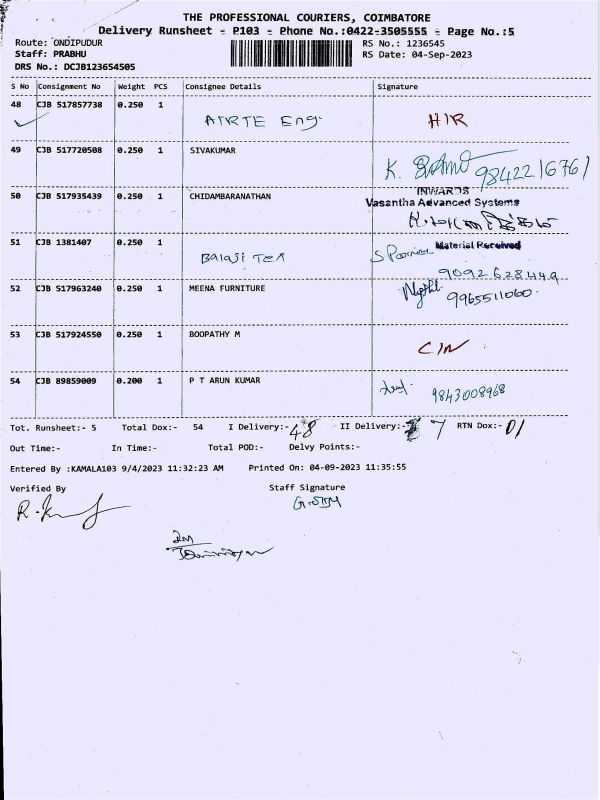 THE PROFESSIONAL COURIERS, COIMBATORE
Delivery Runsheet - P103 - Phone No.:0422-3505555 - Page No.:5
Route: ONDIPUDUR RS No.: 1236545
Staff: PRABHU RS Date: 04-Sep-2023
DRS No.: DCJB123654505
S No Consignment No Weight PCS Consignee Details Signature
48 CJB 517857738 0.250 1 AIRTE Eng. HIR
49 CJB 517720508 0.250 1 SIVAKUMAR K. 9842216761
50 CJB 517935439 0.250 1 CHIDAMBARANATHAN INWARDS
Vasantha Advanced Systems
51 CJB 1381407 0.250 1 Balaji Tex Material Received
9092628449
52 CJB 517963240 0.250 1 MEENA FURNITURE 9965511060
53 CJB 517924550 0.250 1 BOOPATHY M C/N
54 CJB 89859009 0.200 1 P T ARUN KUMAR 9843008968
Tot. Runsheet:- 5 Total Dox:- 54 I Delivery:- 48 II Delivery:- 7 RTN Dox:- 01
Out Time:- In Time:- Total POD:- Delvy Points:-
Entered By :KAMALA103 9/4/2023 11:32:23 AM Printed On: 04-09-2023 11:35:55
Verified By Staff Signature